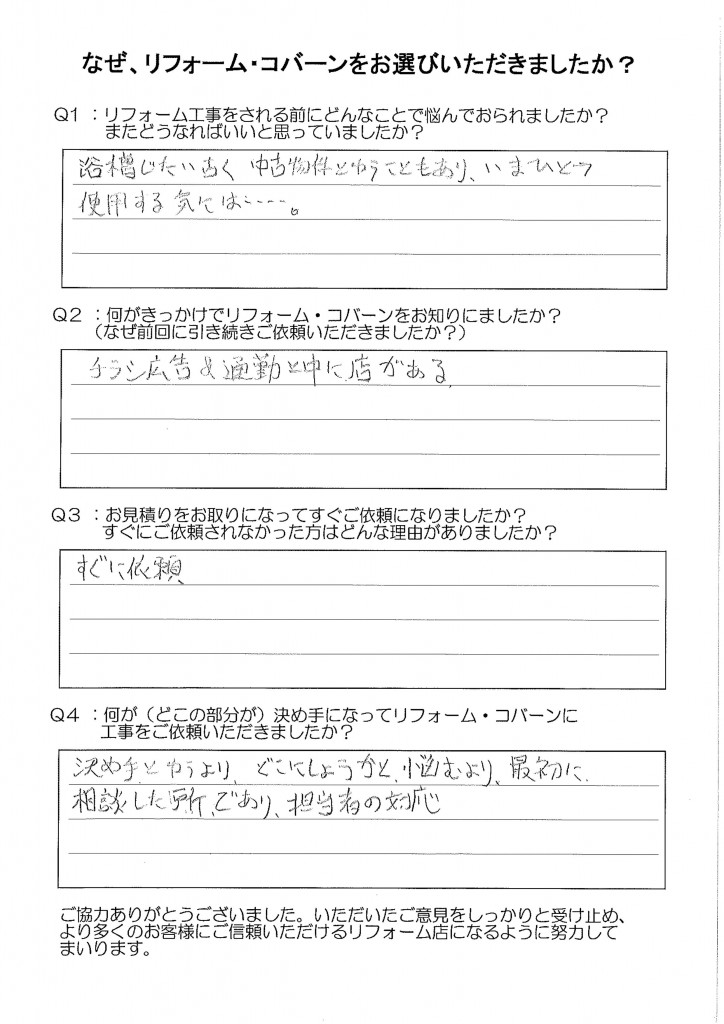 なぜ、リフォーム・コバーンをお選びいただきましたか？
Q1 ：リフォーム工事をされる前にどんなことで悩んでおられましたか？
またどうなればいいと思っていましたか？
浴槽じたい古く 中古物件とゆうこともあり、いまひとつ
使用する気には……。
Q2 ：何がきっかけでリフォーム・コバーンをお知りにましたか？
（なぜ前回に引き続きご依頼いただきましたか？）
チラシ広告&通勤と中に店がある
Q3 ：お見積りをお取りになってすぐご依頼になりましたか？
すぐにご依頼されなかった方はどんな理由がありましたか？
すぐに依頼
Q4 ：何が（どこの部分が）決め手になってリフォーム・コバーンに
工事をご依頼いただきましたか？
決め手とゆうより、どこにしょうかと、悩むより、最初に
相談した所、であり、担当者の対応
ご協力ありがとうございました。いただいたご意見をしっかりと受け止め、
より多くのお客様にご信頼いただけるリフォーム店になるように努力して
まいります。